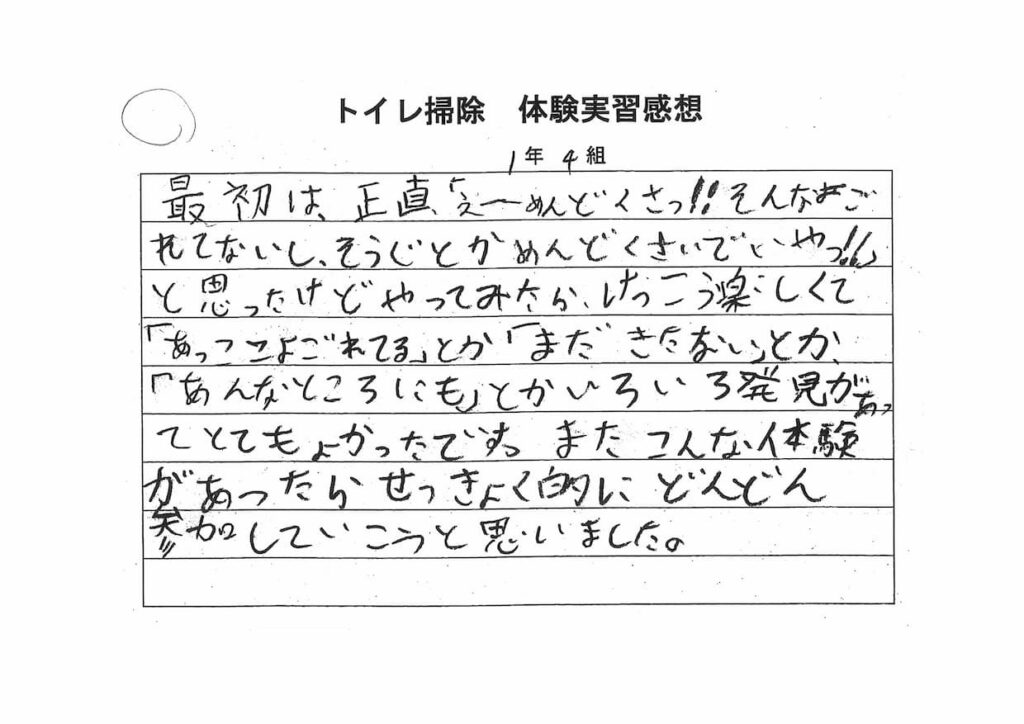 トイレ掃除　体験実習感想
1年 4組
最初は、正直、「えーめんどくさっ!!そんなよご
れてないし、そうじとかめんどくさいでいやっ!!」
と思ったけどやってみたら、けっこう楽しくて
「あっここよごれてる」とか「まだ きたない」とか、
「あんなところにも」とかいろいろ発見があっ
てとてもよかったです。またこんな体験
があったらせっきょく的にどんどん
参加していこうと思いました。